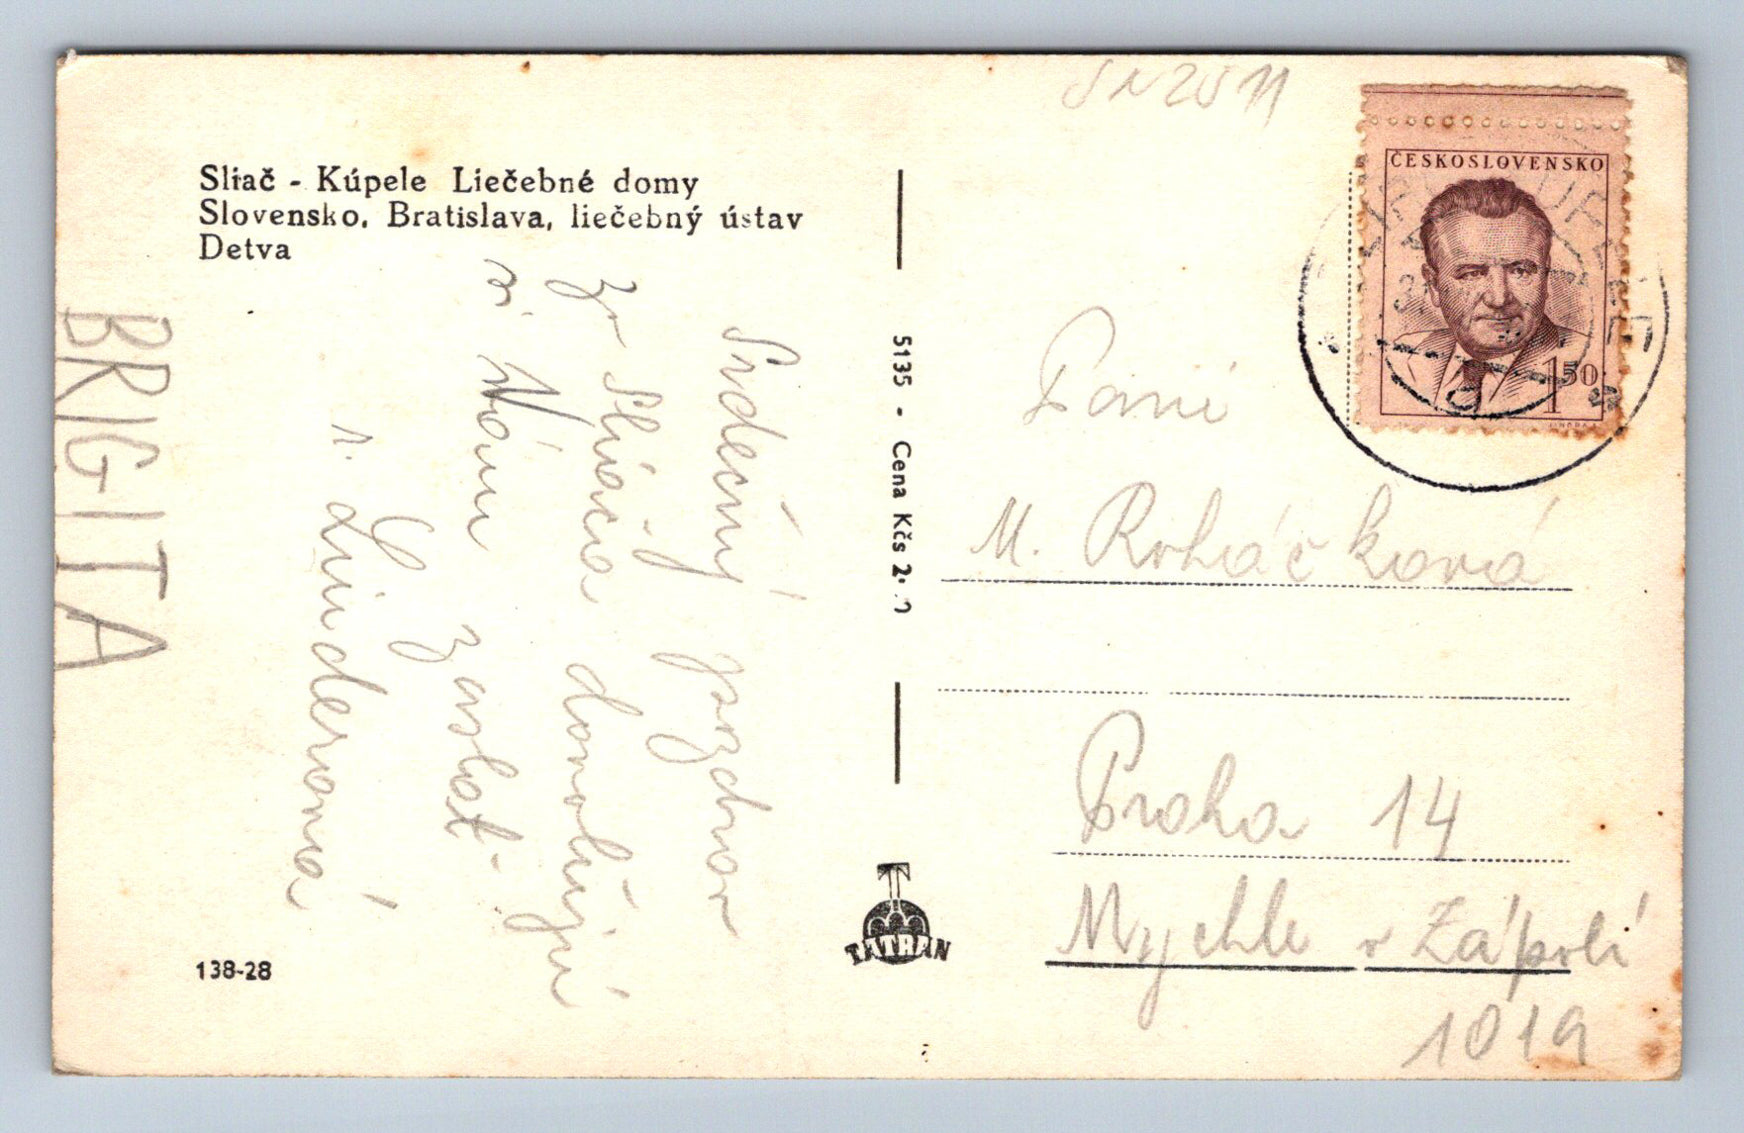 Sliač - Kúpele Liečebné domy
Slovensko, Bratislava, liečebný ústav
Detva
BRIGITA
Srdečný pozdrav
ze Sliača dovolují
si Vám zaslat
Linderová
138-28
5135 - Cena Kčs 2·
TATRAN
ČESKOSLOVENSKO
1 50
Paní
M. Roháčková
Praha 14
Mychle v Zápolí
1019